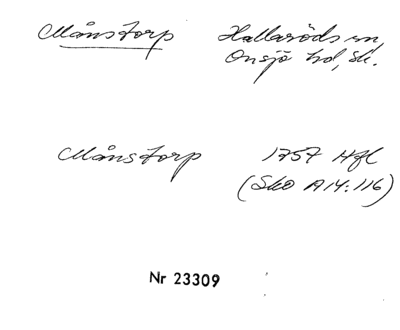 Månstorp Hallaröds sn
Onsjö hd, Sk.
Månstorp 1757 Hfl
(Sko A14:116)
Nr 23309